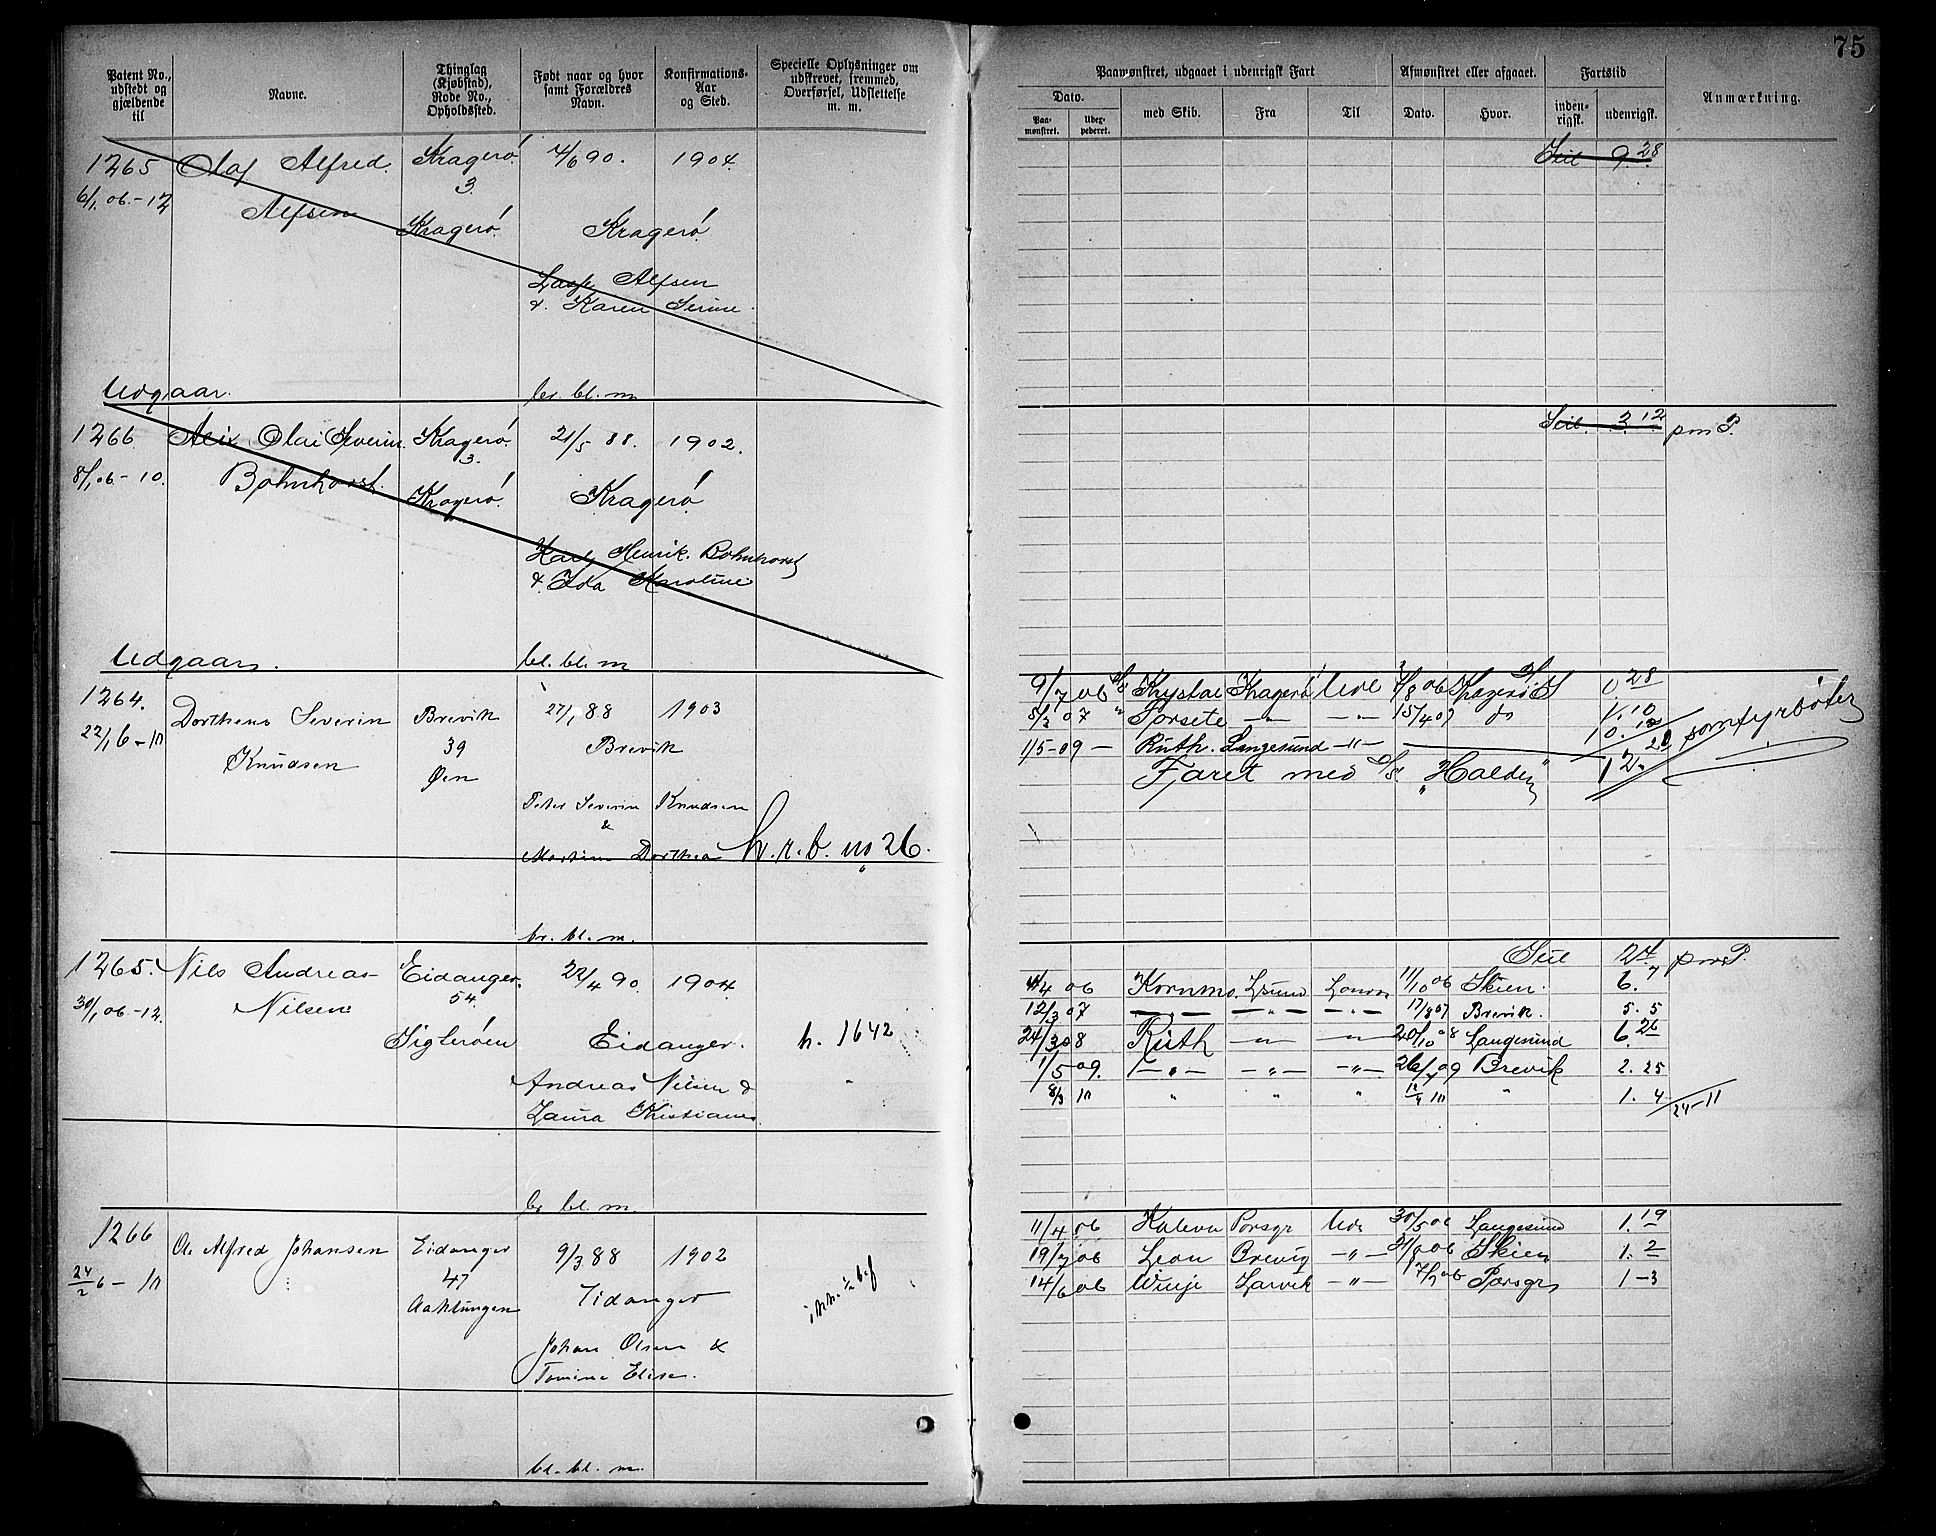 75
Patent No., udstedt og gjældende til
Navne.
Thinglag (Kjøbstad), Rode No., Opholdssted.
Født naar og hvor samt Forældres Navn.
Konfirmations-Aar og Sted.
Specielle Oplysninger om udskrevet, fremmed, Overførsel, Udslettelse m. m.
Paamønstret, udgaaet i udenrigsk Fart
Afmønstret eller afgaaet.
Fartstid
Anmærkning.
Dato.
Paa-mønstret.
med Skib.
Fra
Til
Dato.
Hvor.
inden-rigsk.
udenrigsk.
1265 Olaf Alfred Kragerø 4/6 90. 1904. Seil 9 28
6/1 06.-12 Alfsen 3.
Kragerø Kragerø
Alfsen
& Karen Serine
Udgaar. br. bl. m
1266 Olai Severin Kragerø 21/5 88. 1902. Seil. 3. 12 pm P.
8/1 06-10. Bohnhorst 3.
Kragerø Kragerø
Henrik Bohnhorst
& Ida Karoline
Udgaar. bl. bl. m
1264. Dorthens Severin Brevik 27/1 88 1903 9/7 06 Krystal Kragerø Ude 06 Kragerø 0. 28
22/1 6-10 Knudsen 39 Brevik 07 Torsete -"- -"- 15/4 07 do 1. 10
Øen 1/5-09 - Ruth. Langesund -"-
Faret med S/S "Halden" 12. somfyrbøter
Peter Severin Knudsen
&
Dorthea h.r.b. no 26.
br. bl. m.
1265. Nils Andreas Eidanger 22/4 90. 1904. Seil 24 pm P.
30/1 06-12. Nilsen 54. 4/4 06 Kornmo. Lsund London 11/10 06 Skien. 6. 7
12/3 07 -"- -"- -"- 17/8 07 Brevik. 5. 5
Sigterøen Eidanger. h. 1642 24/3 08 Ruth -"- -"- 20/10 08 Langesund 6. 26
Andreas Nilsen & 1/5 09. -"- -"- -"- 09 Brevik 2. 25
Laura Kristiane 8/3 10 " " " 12/4 10 " 1. 4 24-11
br bl. m.
1266 Ole Alfred Johansen Eidanger 9/3 88 1902 11/4 06 Kaleva Porsgr Ude 30/5 06 Langesund 1. 19
24/2 6-10 47 19/7 06 Leon Brevig -"- Skien 1. 2
Aaklungen Eidanger 14/6 06 Winje Larvik -"- Porsgr 1-3
Johan Olsen &
Tomine Elise.
bl. bl. m.